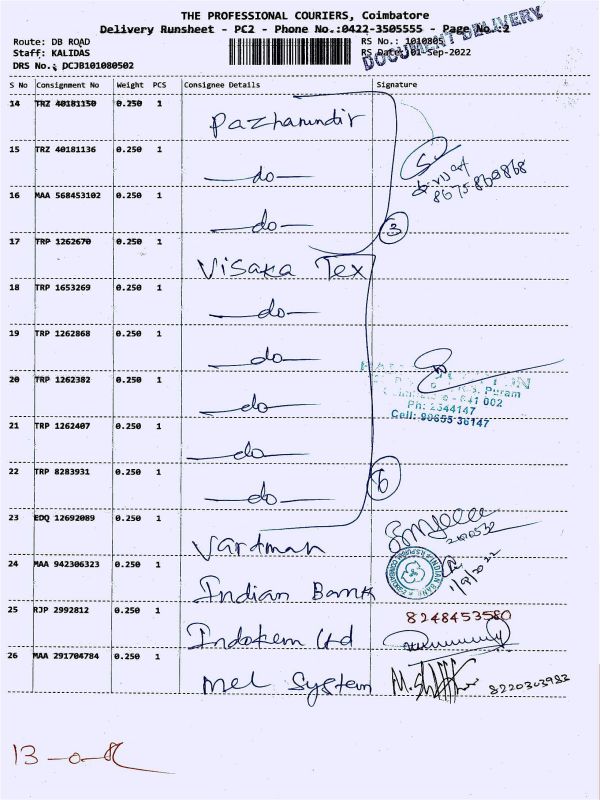 THE PROFESSIONAL COURIERS, Coimbatore
Delivery Runsheet - PC2 - Phone No.:0422-3505555 - Page No.:2
DOCUMENT DELIVERY
Route: DB ROAD
RS No.: 1010805
Staff: KALIDAS
RS Date: 01-Sep-2022
DRS No.: DCJB101080502
S No Consignment No Weight PCS Consignee Details Signature
14 TRZ 40181150 0.250 1 Pazhamudir
15 TRZ 40181136 0.250 1 -do-
8675860868
16 MAA 568453102 0.250 1 -do-
3
17 TRP 1262670 0.250 1 Visaka Tex
18 TRP 1653269 0.250 1 -do-
19 TRP 1262868 0.250 1 -do-
20 TRP 1262382 0.250 1 -do-
R.S. Puram
641 002
Ph: 2544147
Cell: 90655 36147
21 TRP 1262407 0.250 1 -do-
22 TRP 8283931 0.250 1 -do-
6
23 EDQ 12692089 0.250 1 Vardman
24 MAA 942306323 0.250 1 Indian Bank
INDIAN BANK
1/9/2022
25 RJP 2992812 0.250 1 Indokem Ltd
8248453580
26 MAA 291704784 0.250 1 Mel System
8220303982
13